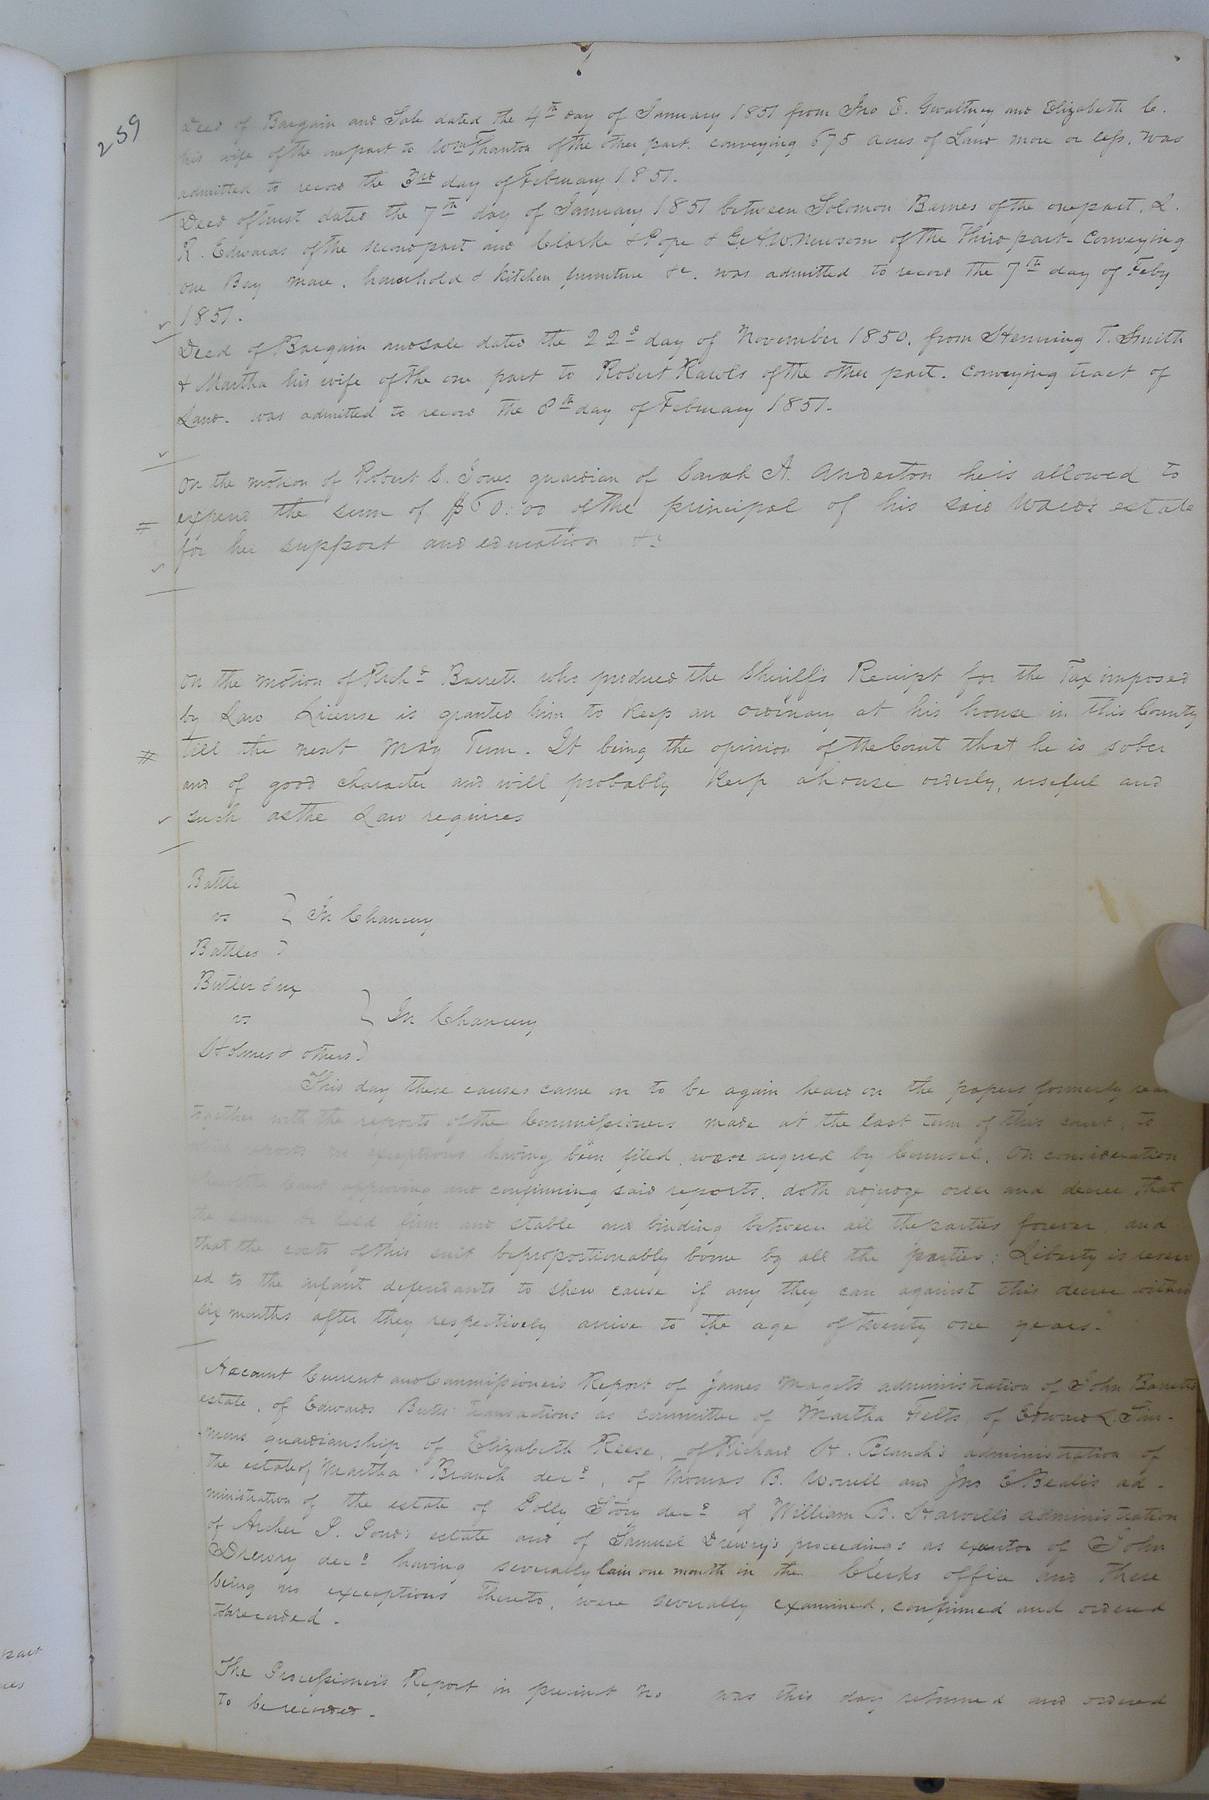 259
Deed of Bargain and Sale dated the 4th day of January 1851 from Jno E. Gwaltney and Elizabeth C.
his wife of the one part to Wm Thauton of the other part. conveying 675 acres of Land more or less, was
admitted to record the 3rd day of February 1851.
Deed of trust dated the 7th day of January 1851 between Solomon Barnes of the one part, L.
R. Edwards of the second part and Clarke & Pope & G&W Newsom of the Third part conveying
one Bay mare, household & kitchen furniture &c. was admitted to record the 7th day of Feby
1851.
Deed of Bargain and sale dated the 22d day of November 1850. from Henning T. Smith
& Martha his wife of the one part to Robert Rawls of the other part. conveying tract of
Land. was admitted to record the 8th day of February 1851.
On the motion of Robert S. Jones guardian of Sarah A. Anderton he is allowed to
expend the sum of $60.00 of the principal of his said Ward's estate
for her support and education &c
On the motion of Richd Barrett who produced the Sheriff's Receipt for the Tax imposed
by Law License is granted him to keep an ordinary at his house in this County
till the next May Term. It being the opinion of the Court that he is sober
and of good character and will probably keep a house orderly, useful and
such as the Law requires
Battle
vs } In Chancery
Battles }
Butler & ux
vs } In Chancery
Holmes & others }
This day these causes came on to be again heard on the papers formerly read
together with the reports of the Commissioners made at the last term of this court, to
which reports no exceptions having been filed, were argued by Counsel, On consideration
whereof the Court approving and confirming said reports, doth adjudge order and decree that
the same be held firm and stable and binding between all the parties forever and
that the costs of this suit be proportionably borne by all the parties; Liberty is reserv
ed to the infant defendants to shew cause if any they can against this decree within
six months after they respectively arrive to the age of twenty one years.
Account Current and Commissioner's Report of James Magets administration of John Barretts
estate, of Edwards Butts transactions as committee of Martha Felts, of Edward L. Sim-
mons guardianship of Elizabeth Reese, of Richard H. Branch's administration of
the estate of Martha Branch decd, of Thomas B. Worrell and Jno C Beal's ad-
ministration of the estate of Polly Story decd of William B. Harvell's administration
of Archer P. estate and of Samuel Drewry's proceedings as exector of John
Drewry decd having severally lain one month in the Clerks office and there
being no exceptions thereto, were severally examined, confirmed and ordered
to be recorded.
The Processioner's Report in precinct No was this day returned and ordered
to be recorded.